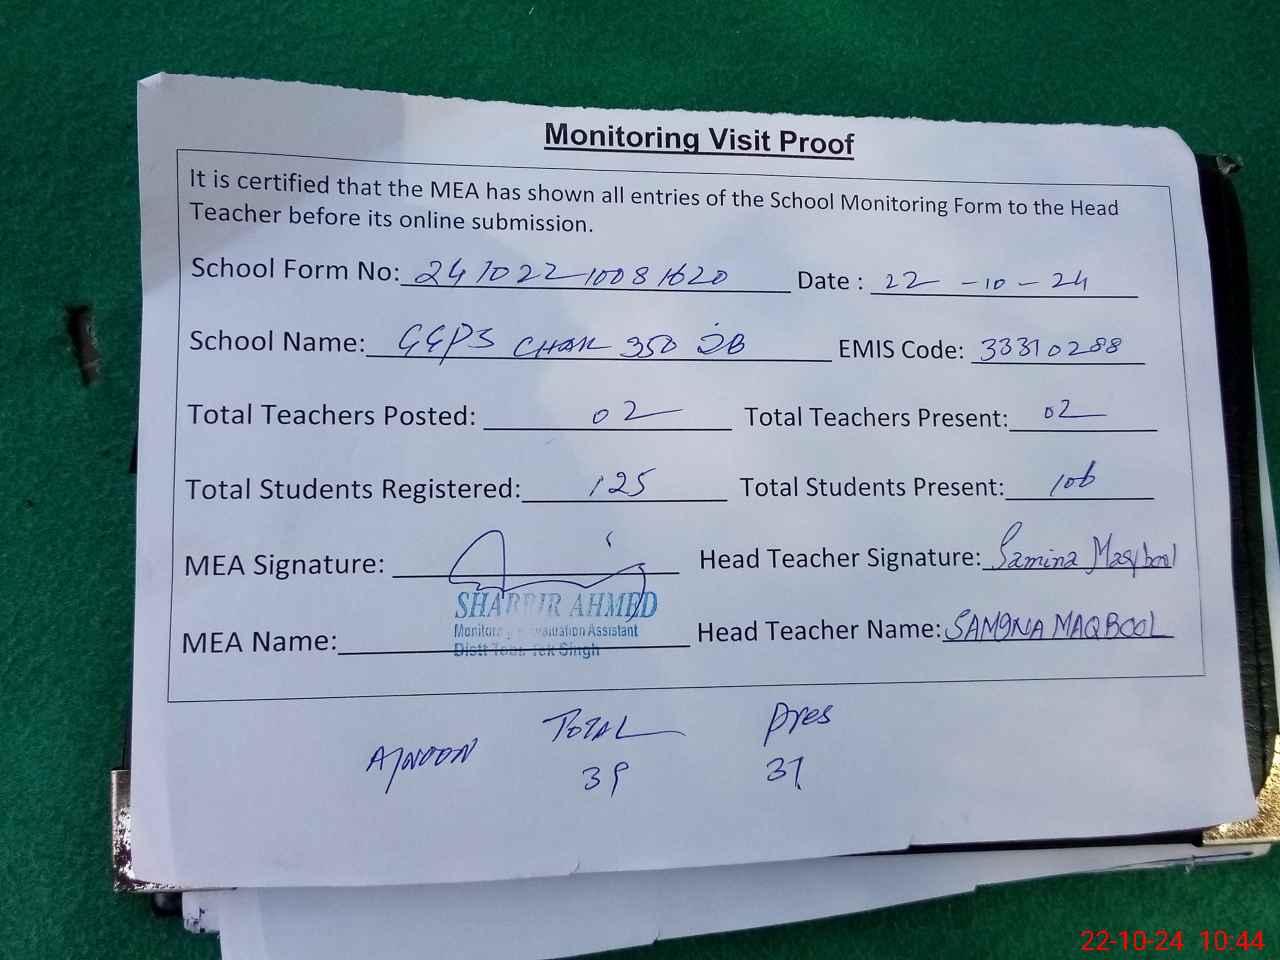 Monitoring Visit Proof
It is certified that the MEA has shown all entries of the School Monitoring Form to the Head
Teacher before its online submission.
School Form No: 24102210081620 Date : 22-10-24
School Name: GGPS CHAK 350 JB EMIS Code: 33310288
Total Teachers Posted: 02 Total Teachers Present: 02
Total Students Registered: 125 Total Students Present: 106
MEA Signature: Head Teacher Signature: Samina Maqbool
SHABBIR AHMED
Monitoring Evaluation Assistant
Distt Toba Tek Singh
MEA Name: Head Teacher Name: SAMINA MAQBOOL
TOTAL Pres
A/NOON 39 37
22-10-24 10:44